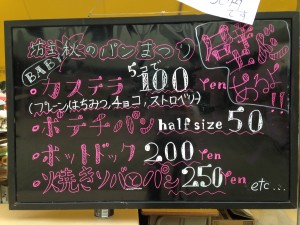 秋のパンまつり
BABY
・カステラ 5コで 100 Yen
(プレーン、はちみつ、チョコ、ストロベリー)
・ポテチパン half size 50
・ホットドック 200 Yen
・火焼きソバパン 250 Yen
etc...